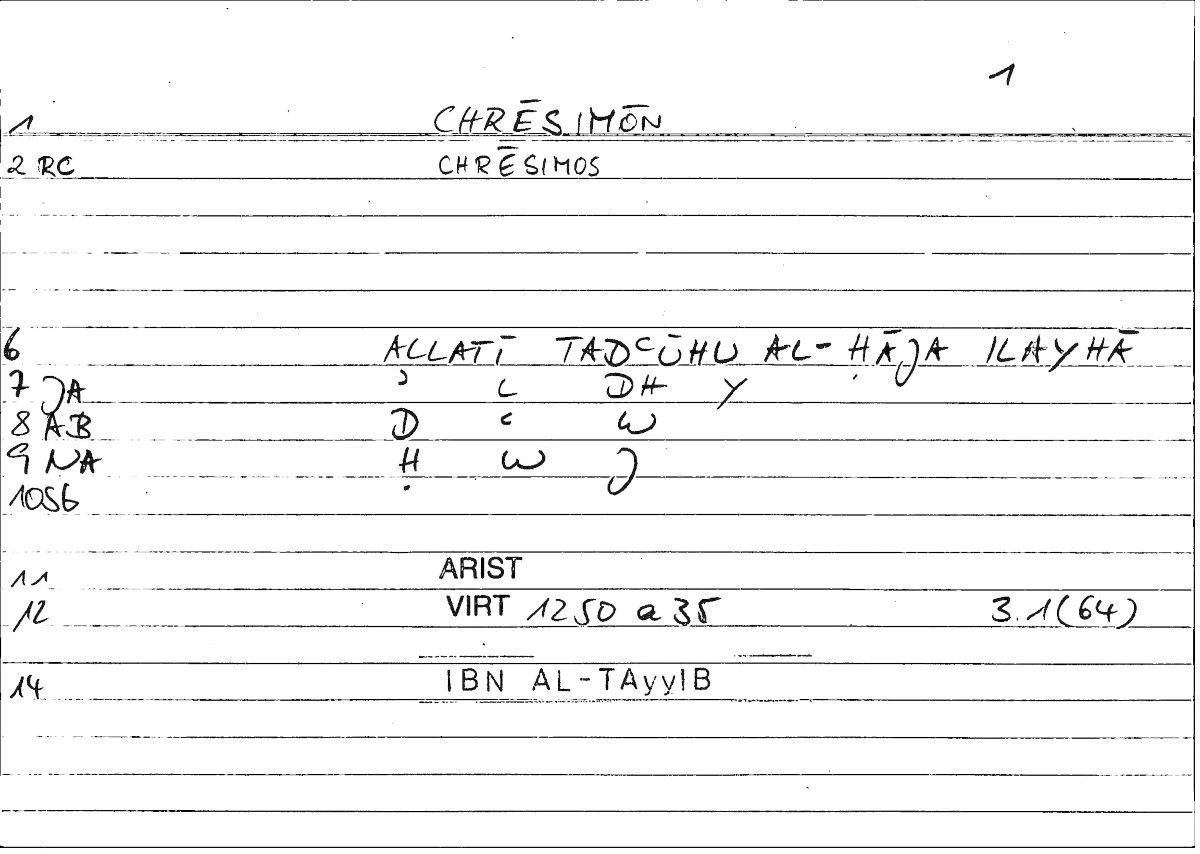 1
1 CHRĒSIMŌN
2 RC CHRĒSIMOS
6 ALLATĪ TADʿŪHU AL-ḤĀJA ILAYHĀ
7 JA ʾ L DH Y
8 AB D ʿ W
9 NA Ḥ W J
10 SG
11 ARIST
12 VIRT 1250 a 35 3.1(64)
14 IBN AL-TAyyIB